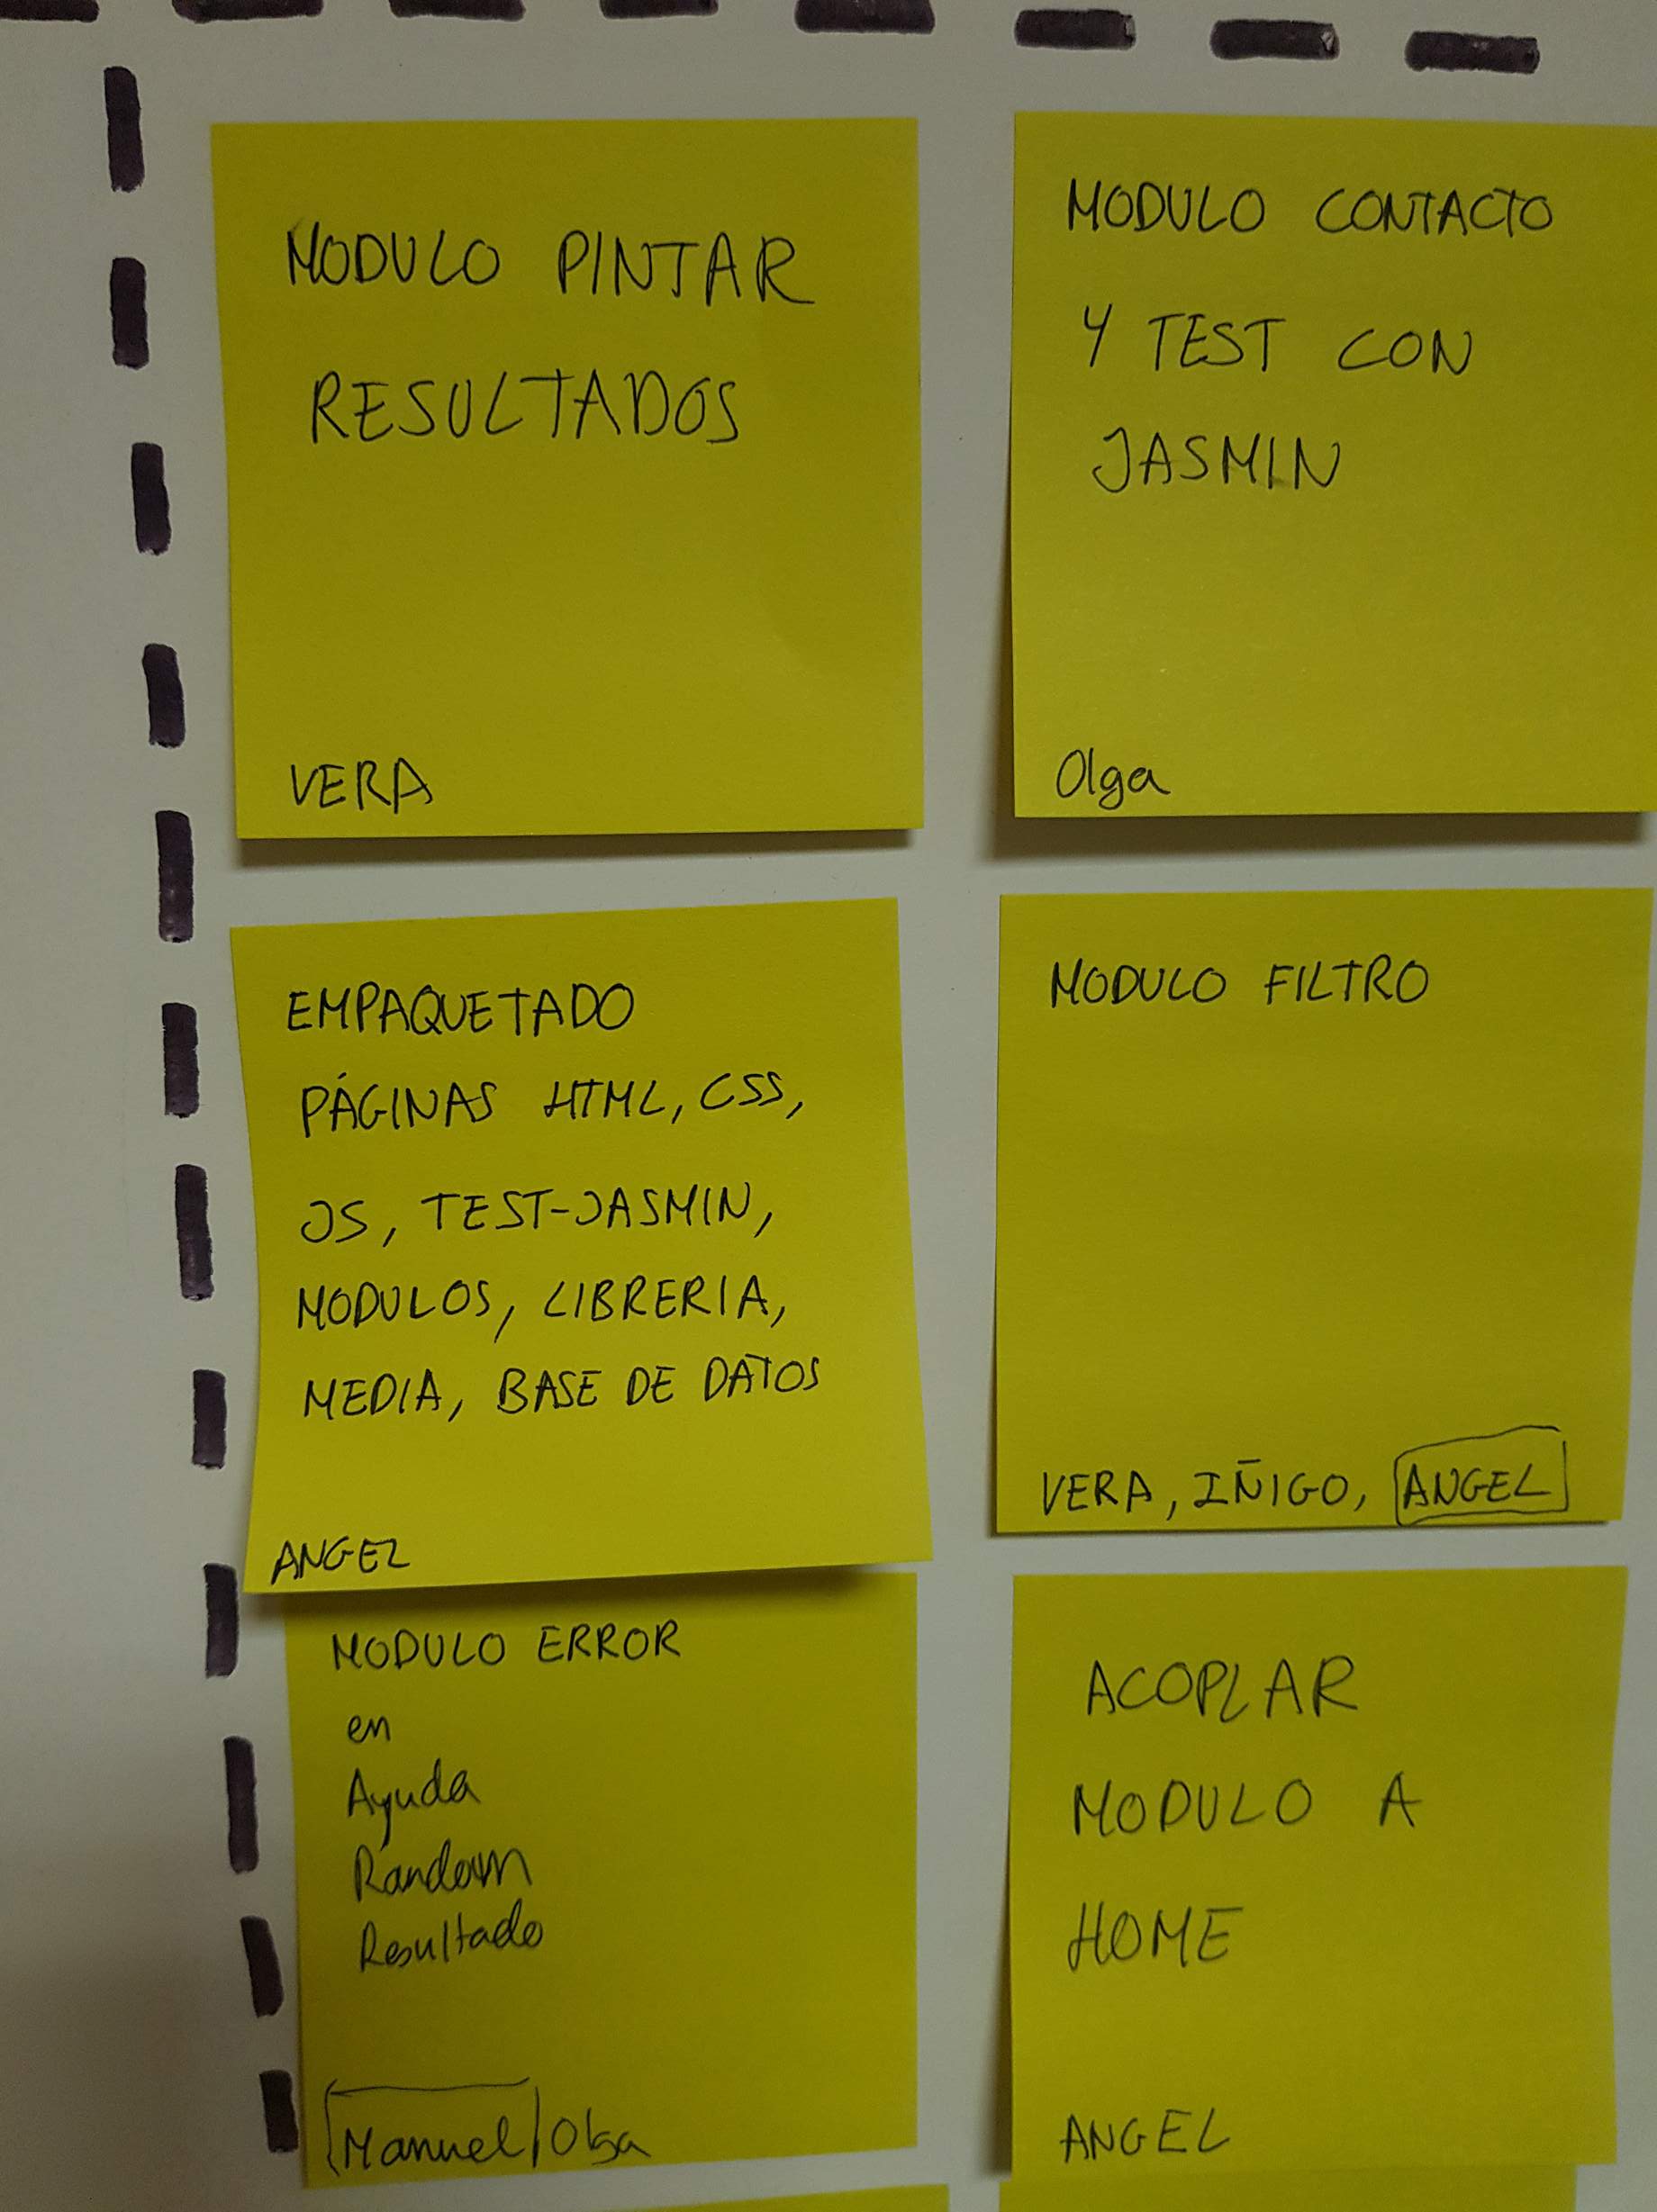 MODULO PINTAR
RESULTADOS
VERA
MODULO CONTACTO
Y TEST CON
JASMIN
Olga
EMPAQUETADO
PÁGINAS HTML, CSS,
JS, TEST-JASMIN,
MODULOS, LIBRERIA,
MEDIA, BASE DE DATOS
ANGEL
MODULO FILTRO
VERA, IÑIGO, ANGEL
MODULO ERROR
en
Ayuda
Random
Resultado
Manuel Olga
ACOPLAR
MODULO A
HOME
ANGEL